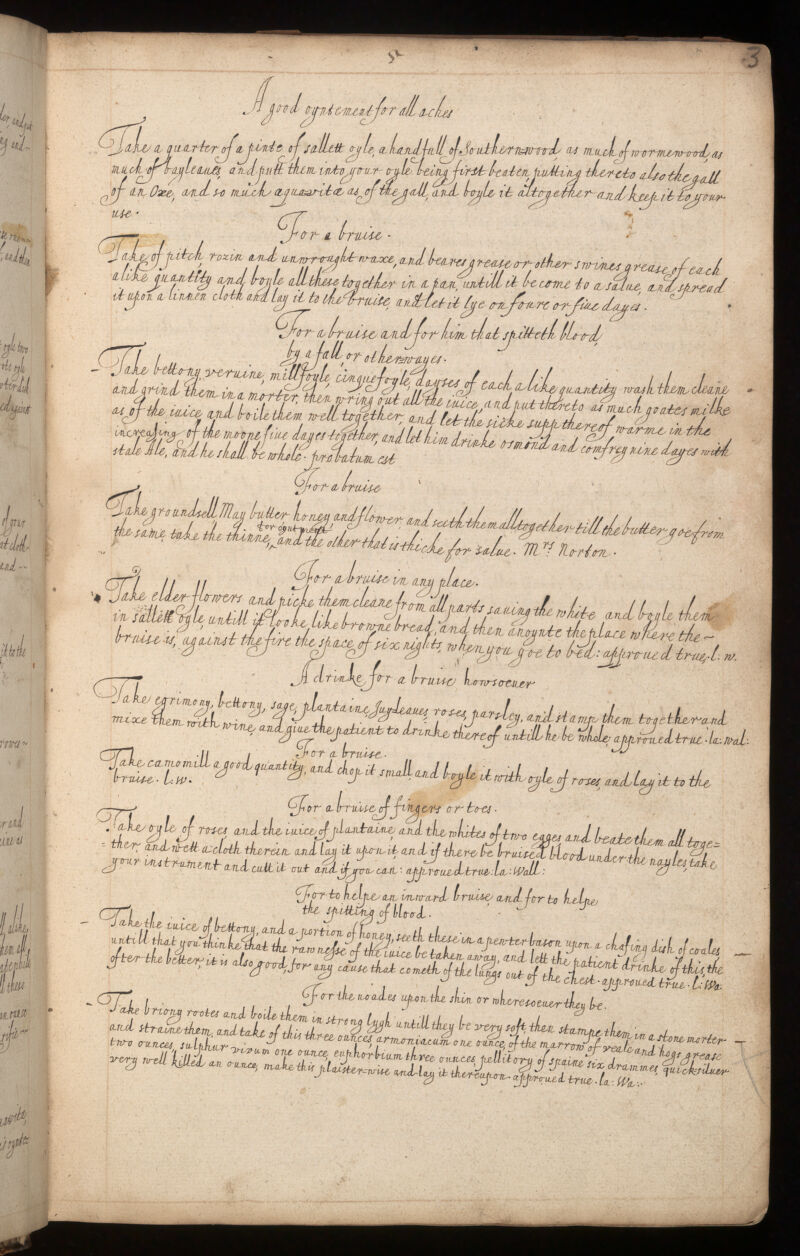 3
A good oyntement for all aches
Take a quarter of a pinte of sallett oyle, a handfull of Southernwood as much of wormewood, as
much of bayleaues, and putt them into your oyle being first beaten, putting thereto also the gall
of an Oxe, and so much aquavitæ as of the gall, and boyle it altogether and keep it to your
use.
For a bruise.
Take of pitch, rozin and unwrought waxe, and beares grease or other swines grease of each
alike quantity and boyle all these together in a pan, untill it become to a salue, and spread
it upon a linnen cloth and lay it to the bruise, and let it lye on foure or fiue dayes.
For a bruise and for him that spitteth blood,
by a fall, or otherwayes.
Take bettony, veruine, millfoyle, cinquefoyle, dayses, of each a like quantity wash them cleane
and grind them in a morter, then wring out all the iuice, and put thereto as much goates milke
as of the iuice, and boile them well together, and let the sicke supp thereof warme in the
increasing of the moone fiue dayes together, and let him drinke osmond and comfrey nine dayes with
stale Ale, and he shall be whole. probatum est
For a bruise
Take groundsell May butter honey and flower, and seeth them alltogether till the butter goe from
the same, take the thinne, for oyntment and the other that is thicke for salue. Mrs Norton.
For a bruise in any place.
Take elder flowers and picke them cleane from all parts sauing the white and boyle them
in sallett oyle, untill it looke, like browne bread, and then anoynte the place where the ~
bruise is, against the fire the space of six nights, when you goe to bed: approued true. l: w.
A drinke for a bruise howsoeuer
Take egrimony, bettony, sage, plantaine, Iuyleaues, roses, parsley, and stamp them together and
mixe them with wine, and giue the patient to drinke thereof untill he be whole, approued true. la: wal:
For a bruise.
Take camomill a good quantity, and chop it small and boyle it with oyle of roses, and lay it to the
bruise. l. w.
For a bruise of fingers or toes.
Take oyle of roses, and the iuice of plantaine, and the whites of two egges and beate them all toge=
= ther, and wett a cloth therein and lay it upon it, and if there be bruised blood under the nayles, take
your instrument and cutt it out and if you can: approued true. la: Wall:
For to helpe an inward bruise, and for to helpe
the spitting of blood.
Take the iuice of bettony, and a portion of honey, seeth these in a pewter bason upon a chafing dish of coales
untill that you thinke that the rawnesse of the iuice be taken away, and lett the patient drinke of this, the
ofter the better, it is also good, for any cause that cometh of the lungs out of the chest. approued true. l: Wa:
For the noades upon the shin or wheresoeuer they be.
Take briony rootes and boile them in strong lygh untill they be very soft, then stampe them in a stone morter
and straine them, and take of this three ounces, armoniacum one ounce, of the marrow of veale and hogs grease
two ounces, sulphur vivum one ounce, euphorbium three ounces, pellitory of spaine six drammes, quicksiluer
very well killed an ounce, make this plaister=wise and lay it thereupon. approued true. la: Wa: